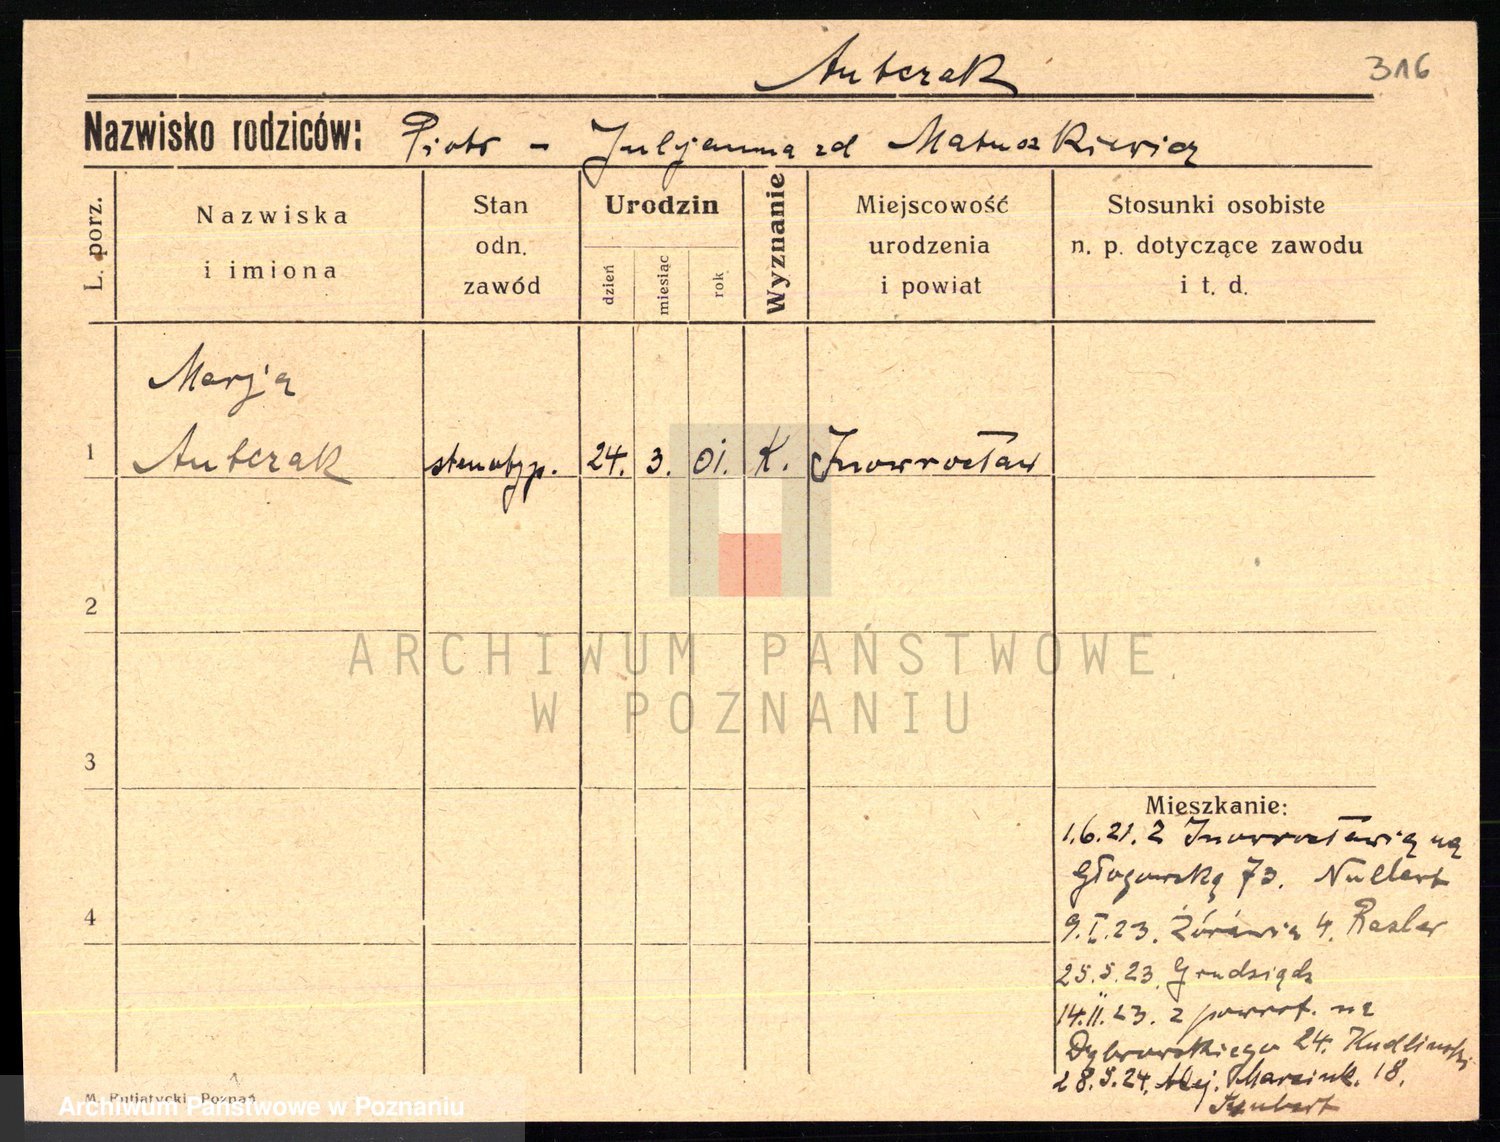 Antczak
316
Nazwisko rodziców: Piotr - Juljanna zd Matuszkiewicz
L. porz.
Nazwiska
i imiona
Stan
odn.
zawód
Urodzin
dzień
miesiąc
rok
Wyznanie
Miejscowość
urodzenia
i powiat
Stosunki osobiste
n. p. dotyczące zawodu
i t. d.
Marja
1 Antczak stenotyp. 24. 3. 01. K. Inowrocław
2
ARCHIWUM PAŃSTWOWE
W POZNANIU
3
Mieszkanie:
1.6.21. z Inowrocławia na
Głogowską 73.
4
9.I.23. Żórawia 4.
25.5.23. Grudziądz
14.II.23. z powrot. na
Dąbrowskiego 24.
28.5.24. Alej. Marcink. 18.
M. Putiatycki, Poznań
Archiwum Państwowe w Poznaniu